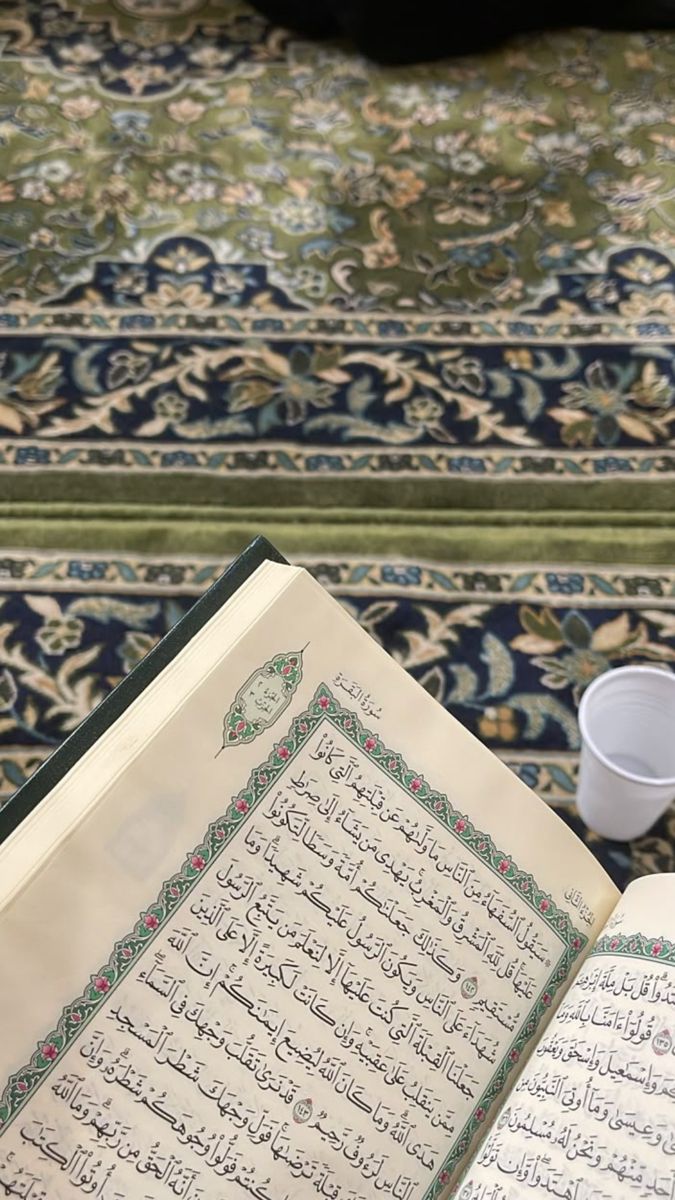 سُورَةُ البَقَرَةِ
الجُزْءُ الثَّانِي
۞ سَيَقُولُ ٱلسُّفَهَآءُ مِنَ ٱلنَّاسِ مَا وَلَّىٰهُمْ عَن قِبْلَتِهِمُ ٱلَّتِى كَانُوا۟
عَلَيْهَا قُل لِّلَّهِ ٱلْمَشْرِقُ وَٱلْمَغْرِبُ يَهْدِى مَن يَشَآءُ إِلَىٰ صِرَٰطٍ
مُّسْتَقِيمٍ ١٤٢ وَكَذَٰلِكَ جَعَلْنَٰكُمْ أُمَّةً وَسَطًا لِّتَكُونُوا۟
شُهَدَآءَ عَلَى ٱلنَّاسِ وَيَكُونَ ٱلرَّسُولُ عَلَيْكُمْ شَهِيدًا وَمَا
جَعَلْنَا ٱلْقِبْلَةَ ٱلَّتِى كُنتَ عَلَيْهَآ إِلَّا لِنَعْلَمَ مَن يَتَّبِعُ ٱلرَّسُولَ
مِمَّن يَنقَلِبُ عَلَىٰ عَقِبَيْهِ وَإِن كَانَتْ لَكَبِيرَةً إِلَّا عَلَى ٱلَّذِينَ
هَدَى ٱللَّهُ وَمَا كَانَ ٱللَّهُ لِيُضِيعَ إِيمَٰنَكُمْ إِنَّ ٱللَّهَ
بِٱلنَّاسِ لَرَءُوفٌ رَّحِيمٌ ١٤٣ قَدْ نَرَىٰ تَقَلُّبَ وَجْهِكَ فِى ٱلسَّمَآءِ
قِبْلَةً تَرْضَىٰهَا فَوَلِّ وَجْهَكَ شَطْرَ ٱلْمَسْجِدِ
كُنتُمْ فَوَلُّوا۟ وُجُوهَكُمْ شَطْرَهُۥ وَإِنَّ
أَنَّهُ ٱلْحَقُّ مِن رَّبِّهِمْ وَمَا ٱللَّهُ
أُوتُوا۟ ٱلْكِتَٰبَ
قُلْ بَلْ مِلَّةَ
١٣٥ قُولُوٓا۟ ءَامَنَّا بِٱللَّهِ
وَإِسْمَٰعِيلَ وَإِسْحَٰقَ
وَعِيسَىٰ وَمَآ أُوتِىَ ٱلنَّبِيُّونَ مِن
مِّنْهُمْ وَنَحْنُ لَهُۥ مُسْلِمُونَ
ٱهْتَدَوا۟ وَّإِن تَوَلَّوْا۟